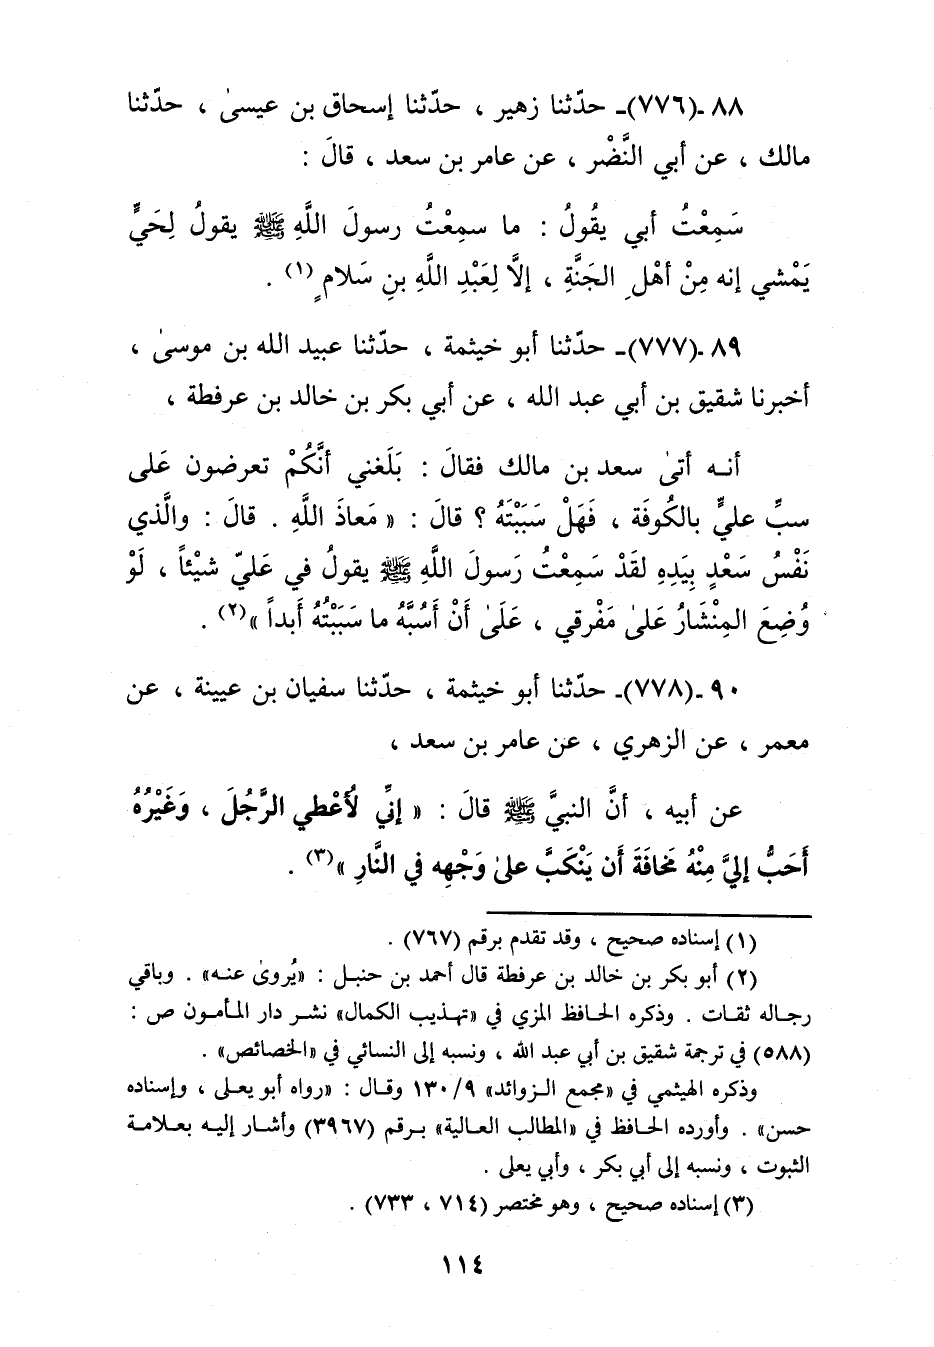 ٨٨ ـ(٧٧٦)ـ حدّثنا زهير ، حدّثنا إسحاق بن عيسىٰ ، حدّثنا
مالك ، عن أبي النَّضْر ، عن عامر بن سعد ، قالَ :
سَمِعْتُ أبي يقُولُ : ما سمِعْتُ رسولَ اللَّهِ ﷺ يقولُ لِحَيٍّ
يَمْشي إنه مِنْ أهْلِ الجَنَّةِ ، إلَّا لِعَبْدِ اللَّهِ بنِ سَلامٍ (١) .
٨٩ ـ(٧٧٧)ـ حدّثنا أبو خيثمة ، حدّثنا عبيد الله بن موسىٰ ،
أخبرنا شقيق بن أبي عبد الله ، عن أبي بكر بن خالد بن عرفطة ،
أنه أتىٰ سعد بن مالك فقالَ : بَلَغني أنَّكُمْ تعرضون عَلى
سبِّ عليٍّ بالكُوفَة ، فَهَلْ سَبَبْتَهُ ؟ قالَ : « مَعاذَ اللَّهِ . قالَ : والَّذي
نَفْسُ سَعْدٍ بِيَدِهِ لقَدْ سَمِعْتُ رَسولَ اللَّهِ ﷺ يقولُ في عَليّ شيْئاً ، لَوْ
وُضِعَ المِنْشَارُ عَلىٰ مَفْرقي ، عَلَىٰ أنْ أَسُبَّهُ ما سَبَبْتُهُ أبداً »(٢) .
٩٠ ـ(٧٧٨)ـ حدّثنا أبو خيثمة ، حدّثنا سفيان بن عيينة ، عن
معمر ، عن الزهري ، عن عامر بن سعد ،
عن أبيه ، أنَّ النبيَّ ﷺ قالَ : « إنِّي لأُعْطي الرَّجُلَ ، وَغَيْرُهُ
أَحَبُّ إليَّ مِنْهُ مَخافَةَ أن يَنْكَبَّ علىٰ وَجْهِه في النَّارِ »(٣) .
(١) إسناده صحيح ، وقد تقدم برقم (٧٦٧) .
(٢) أبو بكر بن خالد بن عرفطة قال أحمد بن حنبل : «يُروىٰ عنه» . وباقي
رجاله ثقات . وذكره الحافظ المزي في «تهذيب الكمال» نشر دار المأمون ص :
(٥٨٨) في ترجمة شقيق بن أبي عبد الله ، ونسبه إلى النسائي في «الخصائص» .
وذكره الهيثمي في «مجمع الزوائد» ٩/ ١٣٠ وقال : «رواه أبو يعلى ، وإسناده
حسن» . وأورده الحافظ في «المطالب العالية» برقم (٣٩٦٧) وأشار إليه بعلامة
الثبوت ، ونسبه إلى أبي بكر ، وأبي يعلى .
(٣) إسناده صحيح ، وهو مختصر (٧١٤ ، ٧٣٣) .
١١٤